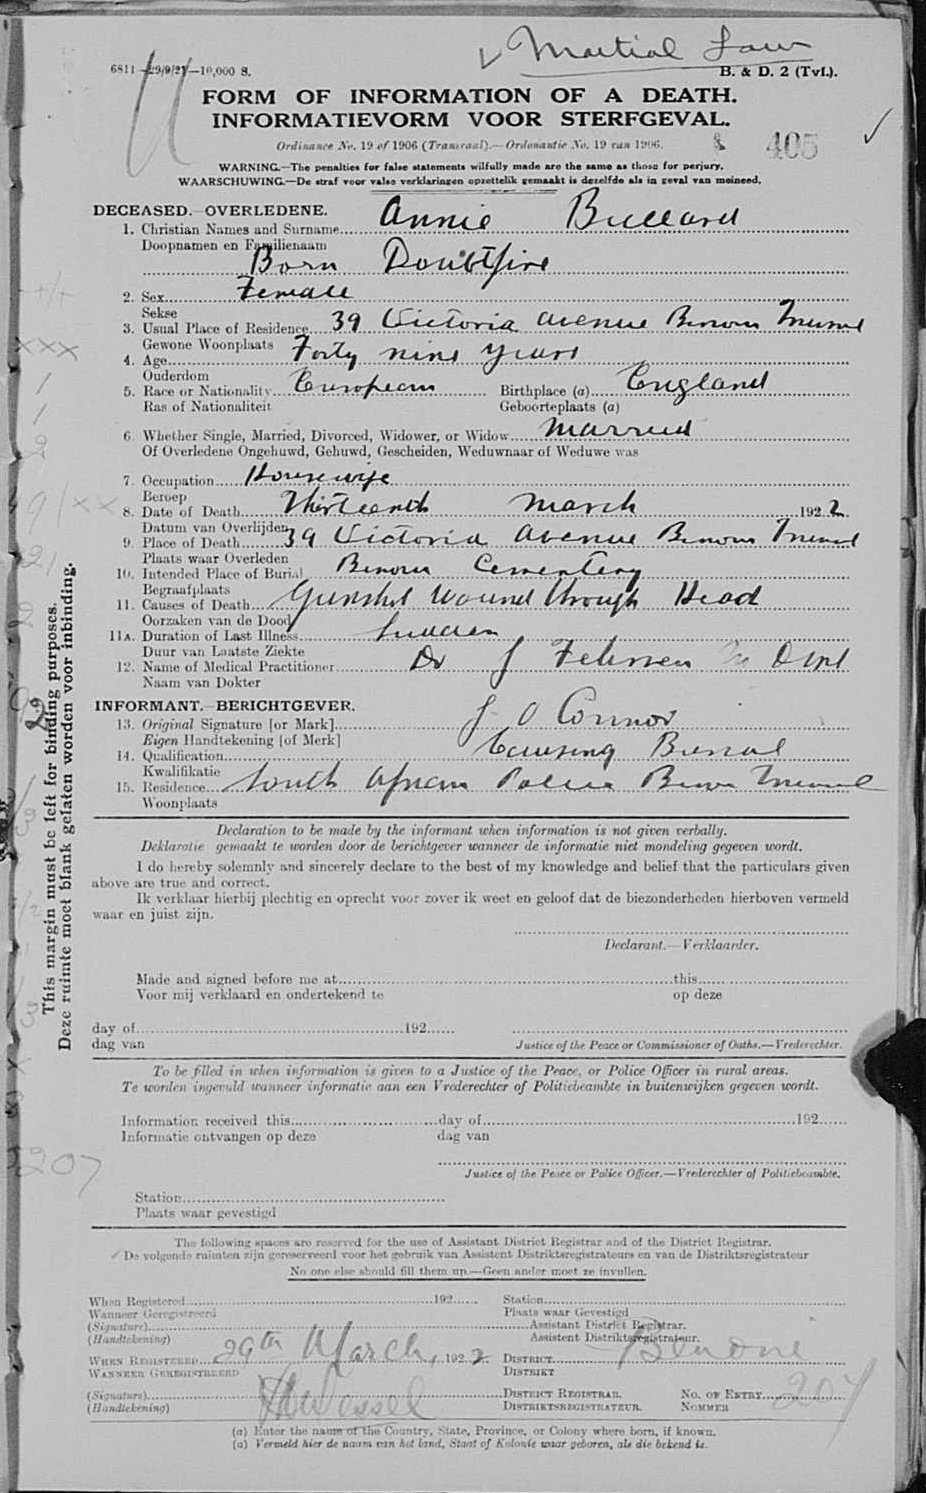 Martial Law
6811—29/9/21—10,000 S. B. & D. 2 (Tvl.).
FORM OF INFORMATION OF A DEATH.
INFORMATIEVORM VOOR STERFGEVAL.
Ordinance No. 19 of 1906 (Transvaal).—Ordonantie No. 19 van 1906.
405
WARNING.—The penalties for false statements wilfully made are the same as those for perjury.
WAARSCHUWING.—De straf voor valse verklaringen opzettelik gemaakt is dezelfde als in geval van meineed.
DECEASED.—OVERLEDENE.
1. Christian Names and Surname Annie Bullard
Doopnamen en Familienaam
Born Doubtfire
2. Sex Female
Sekse
3. Usual Place of Residence 39 Victoria Avenue Benoni Transvaal
Gewone Woonplaats
4. Age Forty nine years
Ouderdom
5. Race or Nationality European Birthplace (a) England
Ras of Nationaliteit Geboorteplaats (a)
6. Whether Single, Married, Divorced, Widower, or Widow Married
Of Overledene Ongehuwd, Gehuwd, Gescheiden, Weduwnaar of Weduwe was
7. Occupation Housewife
Beroep
8. Date of Death Thirteenth March 1922.
Datum van Overlijden
9. Place of Death 39 Victoria Avenue Benoni Transvaal
Plaats waar Overleden
10. Intended Place of Burial Benoni Cementery
Begraafplaats
11. Causes of Death Gunshot Wound through Head
Oorzaken van de Dood
11A. Duration of Last Illness Sudden
Duur van Laatste Ziekte
12. Name of Medical Practitioner Dr J
Naam van Dokter
INFORMANT.—BERICHTGEVER.
13. Original Signature [or Mark] J O Connor
Eigen Handtekening [of Merk]
14. Qualification Causing Burial
Kwalifikatie
15. Residence South African Police Benoni Transvaal
Woonplaats
Declaration to be made by the informant when information is not given verbally.
Deklaratie gemaakt te worden door de berichtgever wanneer de informatie niet mondeling gegeven wordt.
I do hereby solemnly and sincerely declare to the best of my knowledge and belief that the particulars given
above are true and correct.
Ik verklaar hierbij plechtig en oprecht voor zover ik weet en geloof dat de biezonderheden hierboven vermeld
waar en juist zijn.
Declarant.—Verklaarder.
Made and signed before me at this
Voor mij verklaard en ondertekend te op deze
day of 192
dag van Justice of the Peace or Commissioner of Oaths.—Vrederechter.
To be filled in when information is given to a Justice of the Peace, or Police Officer in rural areas.
Te worden ingevuld wanneer informatie aan een Vrederechter of Politiebeambte in buitenwijken gegeven wordt.
Information received this day of 192
Informatie ontvangen op deze dag van
207
Justice of the Peace or Police Officer.—Vrederechter of Politiebeambte.
Station
Plaats waar gevestigd
The following spaces are reserved for the use of Assistant District Registrar and of the District Registrar.
De volgende ruimten zijn gereserveerd voor het gebruik van Assistent Distriktsregistrateurs en van de Distriktsregistrateur
No one else should fill them up.—Geen ander moet ze invullen.
When Registered 192 Station
Wanneer Geregistreerd Plaats waar Gevestigd
(Signature) Assistant District Registrar.
(Handtekening) Assistent Distriktsregistrateur.
WHEN REGISTERED 29th March, 1922 DISTRICT Benoni
WANNEER GEREGISTREERD DISTRIKT
(Signature) DISTRICT REGISTRAR. NO. OF ENTRY 207
(Handtekening) DISTRIKTSREGISTRATEUR. NOMMER
(a) Enter the name of the Country, State, Province, or Colony where born, if known.
(a) Vermeld hier de naam van het land, Staat of Kolonie waar geboren, als die bekend is.
This margin must be left for binding purposes.
Deze ruimte moet blank gelaten worden voor inbinding.